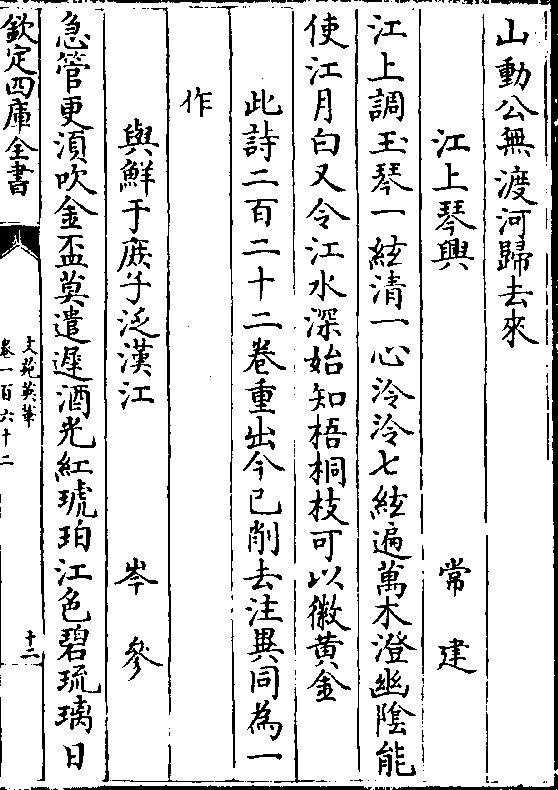 山動公無渡河歸去來
江上琴興　常建
江上調玉琴一絃清一心泠泠七絃遍萬木澄幽陰能
使江月白又令江水深始知梧桐枝可以徽黃金
此詩二百二十二卷重出今已削去注異同為一
作
與鮮于庶子泛漢江　岑參
急管更須吹金盃莫遣遲酒光紅琥珀江色碧琉璃日
欽定四庫全書
文苑英華
卷一百六十二
十二